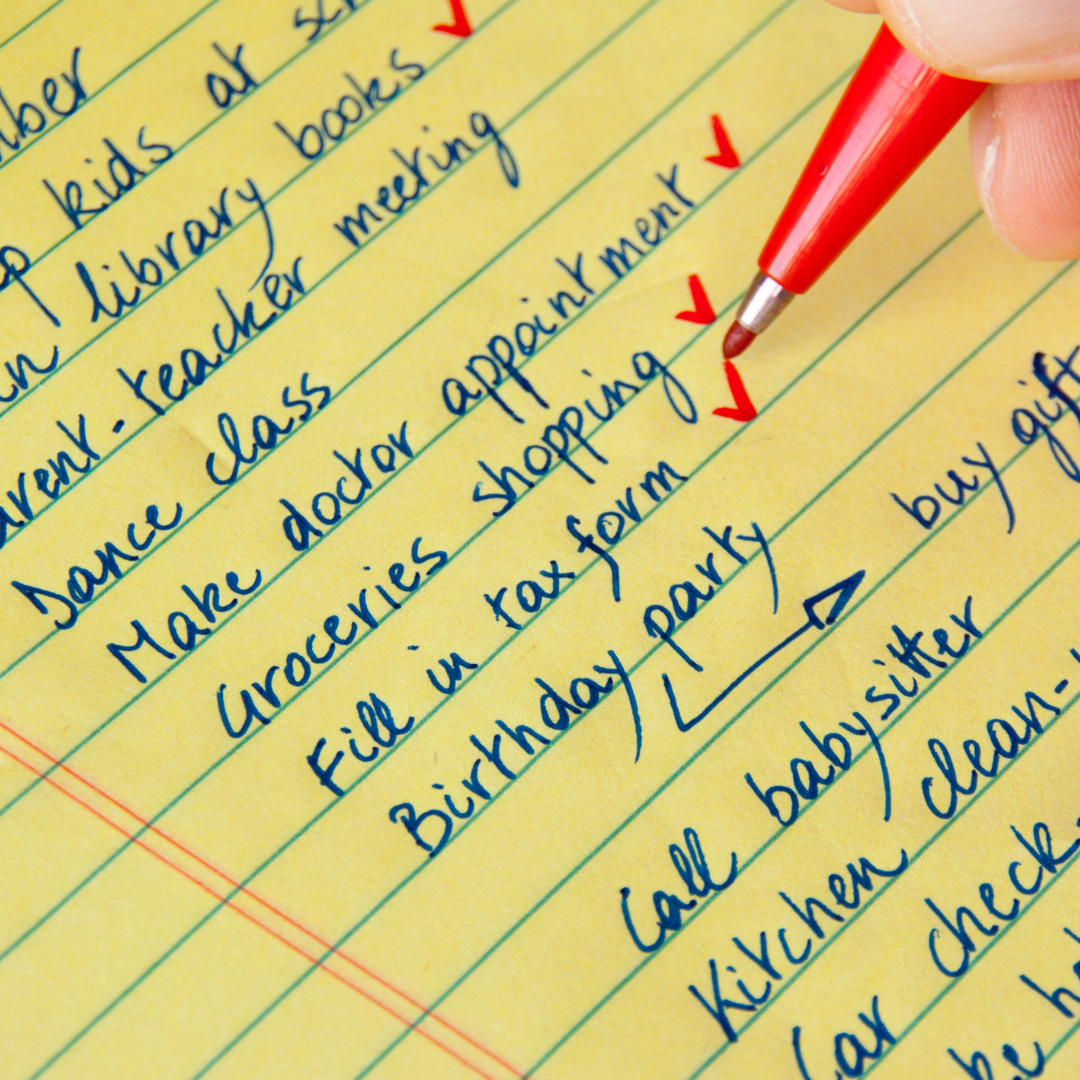 at
kids
library books
teacher meeting
Dance class
Make doctor appointment
Groceries shopping
Fill in tax form
Birthday party
buy gift
Call babysitter
Kitchen clean-
Car check-